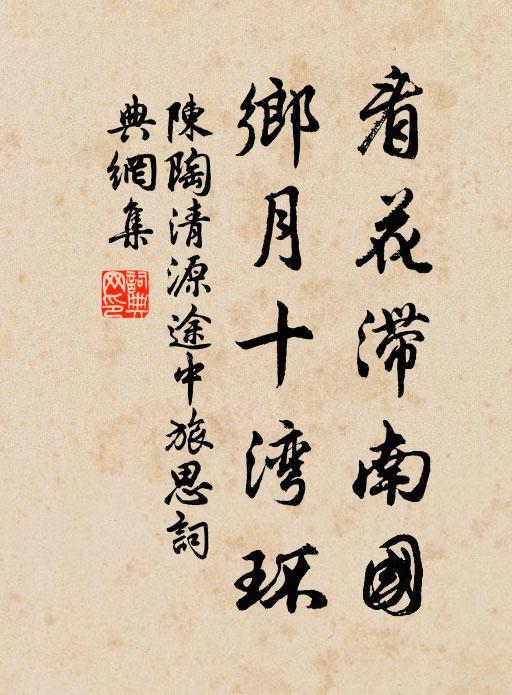 看花滞南國
鄉月十湾环
陳陶清源途中旅思詞
典網集
詞典
网印